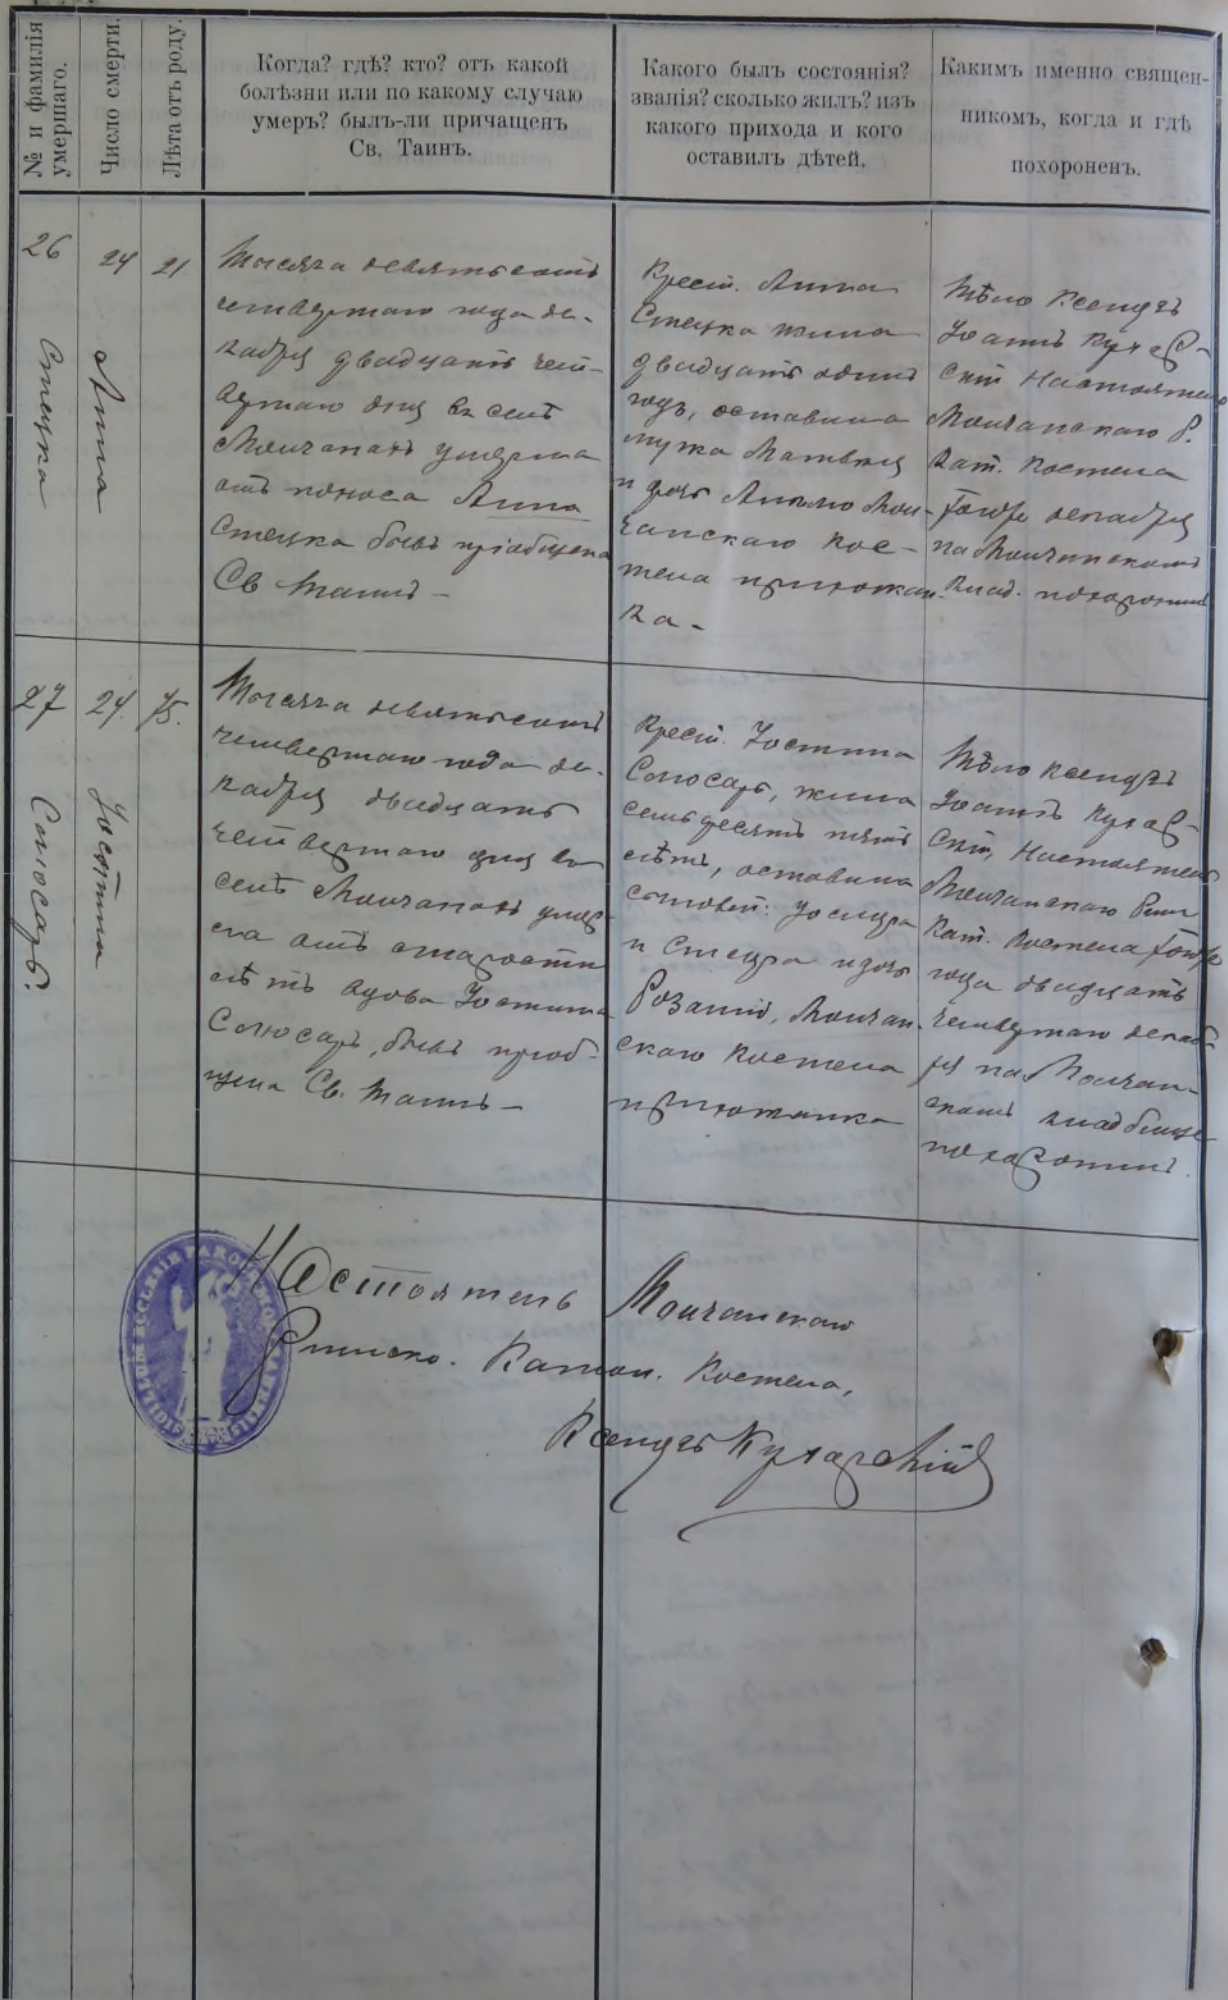 № и фамилія
умершаго.
Число смерти.
Лѣта отъ роду.
Когда? гдѣ? кто? отъ какой
болѣзни или по какому случаю
умеръ? былъ-ли причащенъ
Св. Таинъ.
Какого былъ состоянія?
званія? сколько жилъ? изъ
какого прихода и кого
оставилъ дѣтей.
Какимъ именно священ-
никомъ, когда и гдѣ
похороненъ.
26
Стецка
24
Анна
21
Тысяча девятьсотъ
четвертаго года де-
кабря двадцать чет-
вертаго дня въ селѣ
Молчанахъ умерла
отъ поноса Анна
Стецка бывъ пріобщена
Св Таинъ –
Крест. Анна
Стецка жила
двадцать одинъ
годъ, оставила
мужа Матвѣя
и дочь Мол-
чанскаго кос-
тела прихожан-
ка -
Тѣло Ксендзъ
Іоаннъ Кухар-
скій Настоятель
Молчанскаго Р.
Кат. Костела
декабря
на Молчанскомъ
клад. похоронилъ
27
Слюсарь.
24.
Юстина
75.
Тысяча девятьсотъ
четвертаго года де-
кабря двадцать
четвертаго дня въ
селѣ Молчанахъ умер-
ла отъ старости
лѣтъ вдова Юстина
Слюсарь, бывъ пріоб-
щена Св. Таинъ –
Крест. Юстина
Слюсарь, жила
семьдесятъ пять
лѣтъ, оставила
сыновей: Іосифа
и и дочь
Розалію, Молчан-
скаго Костела
прихожанка
Тѣло ксендзъ
Іоаннъ Кухар-
скій, Настоятель
Молчанскаго Рим
Кат. Костела
года двадцать
четвертаго декаб-
ря на Молчан-
скомъ кладбище
похоронилъ.
Настоятель Молчанскаго
Римско. Катол. Костела,
Ксендзъ Кухарскій